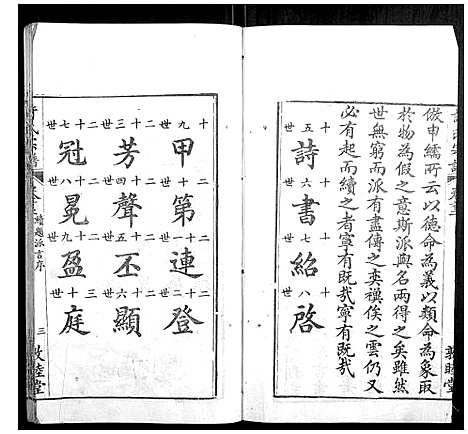 倣申繻所云以德命為義以類命為象取
於物為假之意斯派與名兩得之矣雖然
世無窮而派有盡傳之奕禩俟之雲仍又
必有起而續之者寧有既哉寧有既哉
十五世
詩
十六世
書
十七世
紹
十八世
啓
十九世
甲
二十世
第
二十一世
連
二十二世
登
二十三世
芳
二十四世
聲
二十五世
丕
二十六世
顯
二十七世
冠
二十八世
冕
二十九世
盈
三十世
庭
氏宗譜
派言序
三
敦睦堂